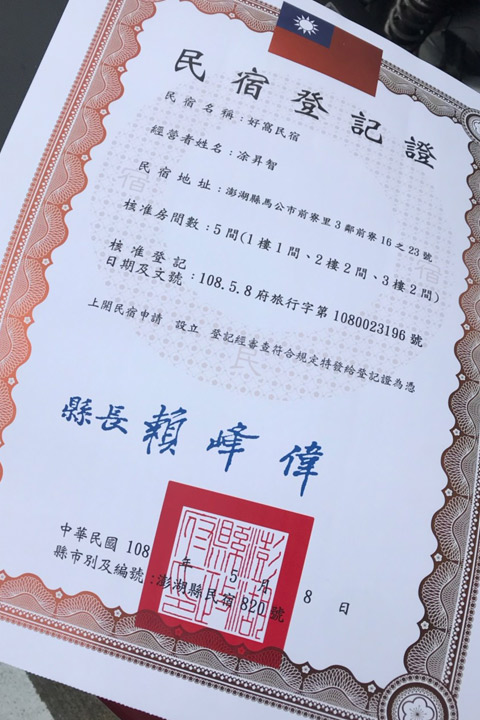 民宿登記證
民宿名稱：好窩民宿
經營者姓名：凃昇智
民宿地址：澎湖縣馬公市前寮里3鄰前寮16之23號
核准房間數：5間(1樓1間、2樓2間、3樓2間)
核准登記
日期及文號：108.5.8府旅行字第1080023196號
上開民宿申請 設立 登記經審查符合規定特發給登記證為憑
縣長 賴峰偉
中華民國 108 年 5 月 8 日
縣市別及編號：澎湖縣民宿820號
澎湖縣政府印